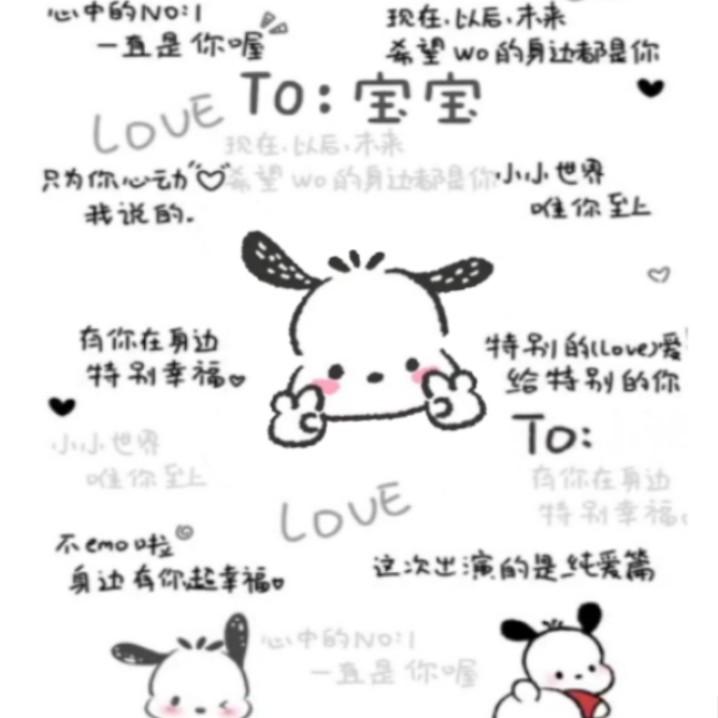 心中的NO:1
一直是你喔
现在.以后.未来
希望wo的身边都是你
To:宝宝
LOVE
现在.以后.未来
希望wo的身边都是你
只为你心动
我说的.
小小世界
唯你至上
有你在身边
特别幸福
特别的(Love)爱
给特别的你
To:
小小世界
唯你至上
有你在身边
特别幸福
LOVE
不emo啦
身边有你超幸福
这次出演的是纯爱篇
心中的NO:1
一直是你喔